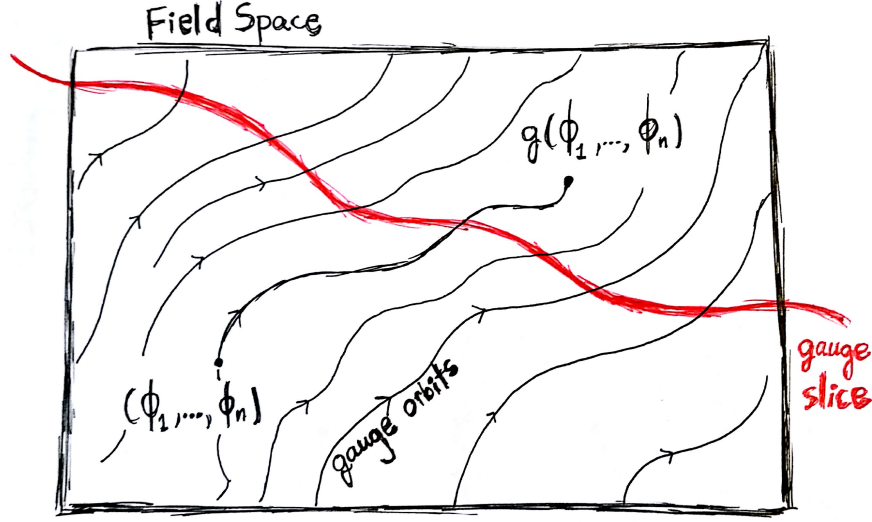 Field Space
g(ϕ₁,..., ϕₙ)
(ϕ₁,..., ϕₙ)
gauge orbits
gauge
slice